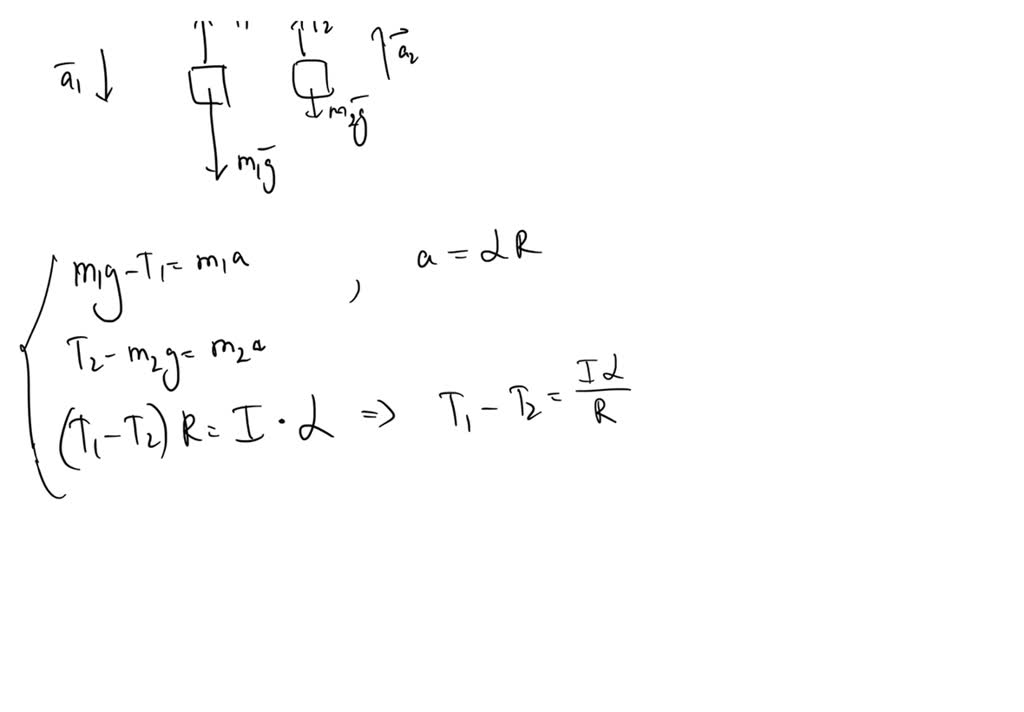 a̅₁ ↓ 2 a⃗₂
m₂g̅
m₁g̅
m₁g - T₁ = m₁a , a = αR
T₂ - m₂g = m₂a
(T₁ - T₂) R = I · α ⇒ T₁ - T₂ = Iα/R